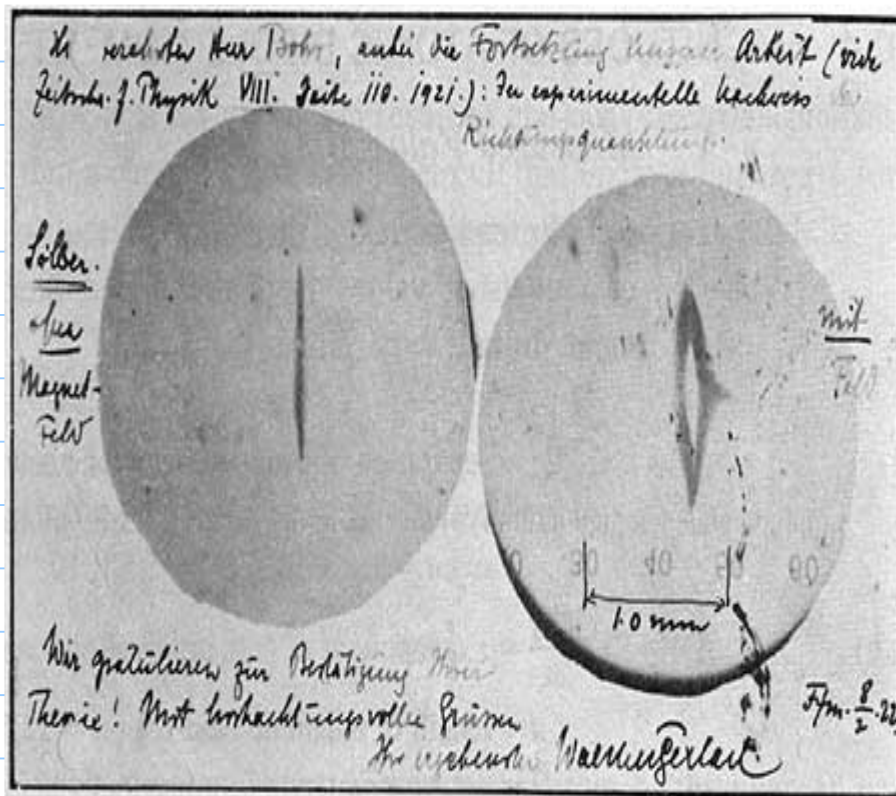 verehrter Herr Bohr, anbei die Fortsetzung unserer Arbeit (vide
Zeitschr. f. Physik VIII. Seite 110. 1921.): Der experimentelle Nachweis
Richtungsquantelung.
Silber.
ohne
Magnet-
Feld
mit
Feld
30 40 50 60
1.0 mm
Wir gratulieren zur Bestätigung Ihrer
Theorie! Mit hochachtungsvollen Grüssen
Ihr ergebenster Walther Gerlach
Ffm. 8/2. 22.